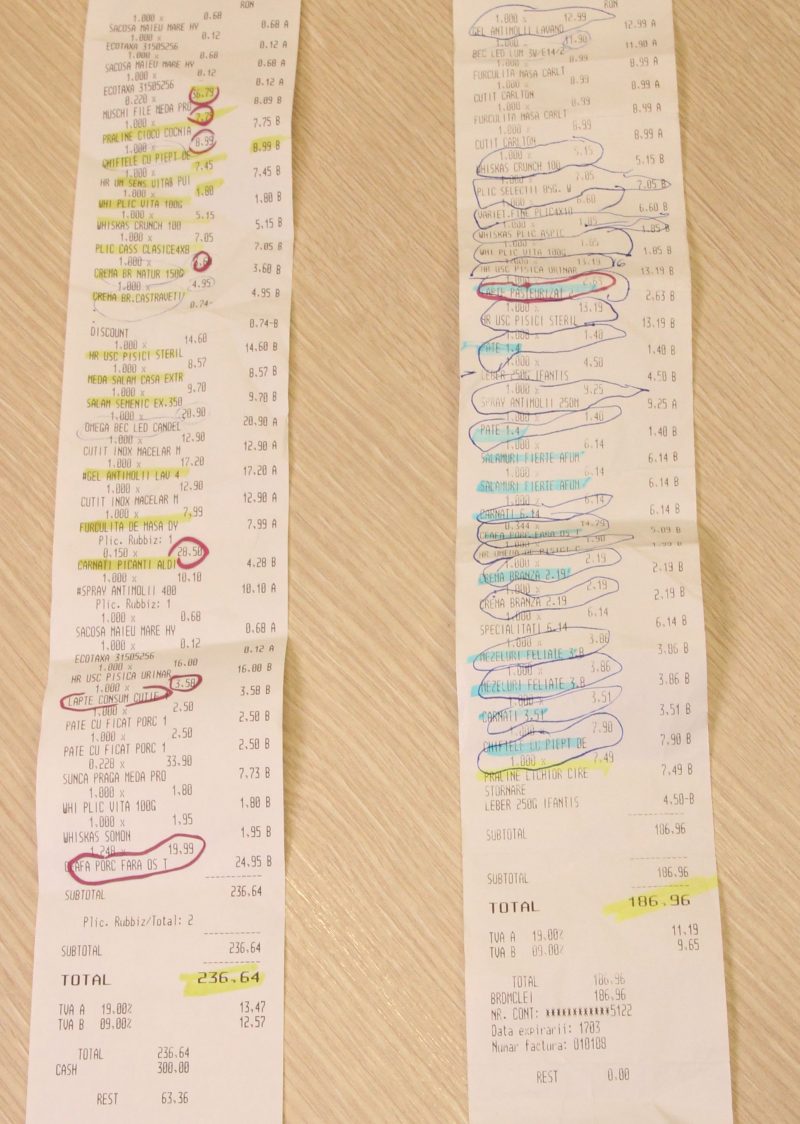 RON
1.000 x 0.68
SACOSA MAIEU MARE HY 0.68 A
1.000 x 0.12
ECOTAXA 31505256 0.12 A
1.000 x 0.68
SACOSA MAIEU MARE HY 0.68 A
1.000 x 0.12
ECOTAXA 31505256 0.12 A
0.220 x 36.79
MUSCHI FILE MEDA PRO 8.09 B
1.000 x 7.75
PRALINE CIOCO COCNIA 7.75 B
1.000 x 8.99
CHIFTELE CU PIEPT DE 8.99 B
1.000 x 7.45
HR UM SENS VITA& PUI 7.45 B
1.000 x 1.80
WHI PLIC VITA 100G 1.80 B
1.000 x 5.15
WHISKAS CRUNCH 100 5.15 B
1.000 x 7.05
PLIC CASS CLASICE4X8 7.05 B
1.000 x
CREMA BR NATUR 150G 3.60 B
1.000 x 4.95
CREMA BR.CASTRAVETI/ 4.95 B
0.74-
DISCOUNT 0.74-B
1.000 x 14.60
HR USC PISICI STERIL 14.60 B
1.000 x 8.57
MEDA SALAM CASA EXTR 8.57 B
1.000 x 9.70
SALAM SEMENIC EX.350 9.70 B
1.000 x 20.90
OMEGA BEC LED CANDEL 20.90 A
1.000 x 12.90
CUTIT INOX MACELAR M 12.90 A
1.000 x 17.20
#GEL ANTIMOLII LAV 4 17.20 A
1.000 x 12.90
CUTIT INOX MACELAR M 12.90 A
1.000 x 7.99
FURCULITA DE MASA DY 7.99 A
Plic. Rubbiz: 1
0.150 x 28.50
CARNATI PICANTI ALDI 4.28 B
1.000 x 10.10
#SPRAY ANTIMOLII 400 10.10 A
Plic. Rubbiz: 1
1.000 x 0.68
SACOSA MAIEU MARE HY 0.68 A
1.000 x 0.12
ECOTAXA 31505256 0.12 A
1.000 x 16.00
HR USC PISICA URINAR 16.00 B
1.000 x 3.58
LAPTE CONSUM CUTIE 3.58 B
1.000 x 2.50
PATE CU FICAT PORC 1 2.50 B
1.000 x 2.50
PATE CU FICAT PORC 1 2.50 B
0.228 x 33.90
SUNCA PRAGA MEDA PRO 7.73 B
1.000 x 1.80
WHI PLIC VITA 100G 1.80 B
1.000 x 1.95
WHISKAS SOMON 1.95 B
1.248 x 19.99
CEAFA PORC FARA OS T 24.95 B
SUBTOTAL 236.64
Plic. Rubbiz/Total: 2
SUBTOTAL 236.64
TOTAL 236.64
TVA A 19.00% 13.47
TVA B 09.00% 12.57
TOTAL 236.64
CASH 300.00
REST 63.36
RON
1.000 x 12.99
GEL ANTIMOLII LAVAND 12.99 A
1.000 x 11.90
BEC LED LUM 3W/E14/2 11.90 A
1.000 x 8.99
FURCULITA MASA CARLT 8.99 A
1.000 x 8.99
CUTIT CARLTON 8.99 A
1.000 x 8.99
FURCULITA MASA CARLT 8.99 A
1.000 x 8.99
CUTIT CARLTON 8.99 A
1.000 x 5.15
WHISKAS CRUNCH 100 5.15 B
1.000 x 7.05
PLIC SELECTII 85G. W 7.05 B
1.000 x 6.60
VARIET.FINE PLIC4X10 6.60 B
1.000 x 1.85
WHISKAS PLIC ASPIC 1.85 B
1.000 x 1.85
WHI PLIC VITA 100G 1.85 B
1.000 x 13.19
HR USC PISICA URINAR 13.19 B
1.000
LAPTE PASTEURIZAT 2 2.63 B
1.000 x 13.19
HR USC PISICI STERIL 13.19 B
1.000 x 1.40
PATE 1.4 1.40 B
1.000 x 4.50
LEBER 250G IFANTIS 4.50 B
1.000 x 9.25
SPRAY ANTIMOLII 250M 9.25 A
1.000 x 1.40
PATE 1.4 1.40 B
1.000 x 6.14
SALAMURI FIERTE AFUM 6.14 B
1.000 x 6.14
SALAMURI FIERTE AFUM 6.14 B
1.000 x 6.14
CARNATI 6.14 6.14 B
0.344 x 14.79
CEAFA PORC FARA OS T 5.09 B
1.000 x 1.90
1.90 B
1.000 x 2.19
CREMA BRANZA 2.19 2.19 B
1.000 x 2.19
CREMA BRANZA 2.19 2.19 B
1.000 x 6.14
SPECIALITATI 6.14 6.14 B
1.000 x 3.86
MEZELURI FELIATE 3.8 3.86 B
1.000 x 3.86
MEZELURI FELIATE 3.8 3.86 B
1.000 x 3.51
CARNATI 3.51 3.51 B
1.000 x 7.90
CHIFTELE CU PIEPT DE 7.90 B
1.000 x 7.49
PRALINE LICHIOR CIRE 7.49 B
STORNARE
LEBER 250G IFANTIS 4.50-B
SUBTOTAL 186.96
SUBTOTAL 186.96
TOTAL 186.96
TVA A 19.00% 11.19
TVA B 09.00% 9.65
TOTAL 186.96
BRDMCLEI 186.96
NR. CONT: ************5122
Data expirarii: 1703
Numar factura: 010108
REST 0.00